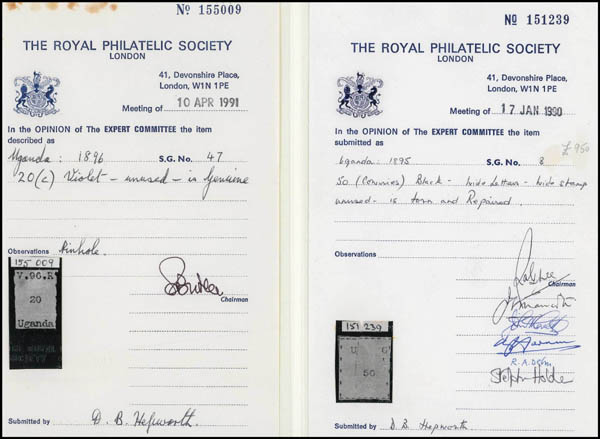 No 155009
THE ROYAL PHILATELIC SOCIETY
LONDON
41, Devonshire Place,
London, W1N 1PE
Meeting of 10 APR 1991
In the OPINION of The EXPERT COMMITTEE the item
described as
Uganda: 1896 S.G. No. 47
20(c) Violet - unused - is Genuine
Observations Pinhole.
155 009
V.96.R
20
Uganda
Chairman
Submitted by D. B. Hepworth.
No 151239
THE ROYAL PHILATELIC SOCIETY
LONDON
41, Devonshire Place,
London, W1N 1PE
Meeting of 17 JAN 1990
In the OPINION of The EXPERT COMMITTEE the item
submitted as
£950
Uganda: 1895 S.G. No. 8
50 (Cowries) Black - wide letters - wide stamp
unused - is torn and Repaired.
Observations
Chairman
151 239
U G
50
Stephen Holder
Submitted by D. B. Hepworth